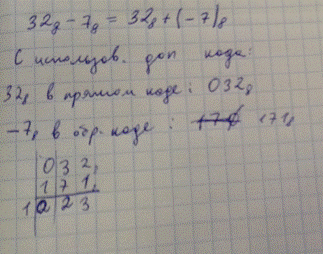 32₈ - 7₈ = 32₈ + (-7)₈
С использов. доп кода:
32₈ в прямом коде: 032₈
-7₈ в обр. коде: 171₈
0 3 2₈
1 7 1₈
1 0 2 3